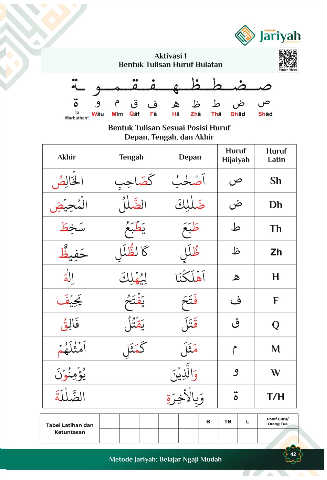 Jariyah
Aktivasi 1
Bentuk Tulisan Huruf Bulatan
ة و م ق ف ه ظ ط ض ص
Ta Marbuthah Wau Mim Qaf Fa Ha Zha Tha Dhad Shad
Bentuk Tulisan Sesuai Posisi Huruf
Depan, Tengah, dan Akhir
Akhir Tengah Depan Huruf Hijaiyah Huruf Latin
الْخَالِصُ كَصَاحِبِ أَصْحٰبُ ص Sh
الْمَحِيْضِ الضَّلٰلُ ضَلٰلِكَ ض Dh
سَخِطَ يَطْبَعُ طَبَعَ ط Th
حَفِيْظٌ ظُلَلٍ ظ Zh
إِلٰهُ لِيُهْلِكَ أَهْلَكْنَا ه H
يَفْتَحُ فَتَحَ ف F
فَالِقُ يَقْتُلُ قَتَلَ ق Q
أَمْثَلُهُمْ كَمَثَلِ مَثَلَ م M
يُؤْمِنُوْنَ وَالَّذِيْنَ و W
الضَّلٰلَةَ وَبِالْاٰخِرَةِ ة T/H
Tabel Latihan dan Ketuntasan B TB L
42
Metode Jariyah: Belajar Ngaji Mudah